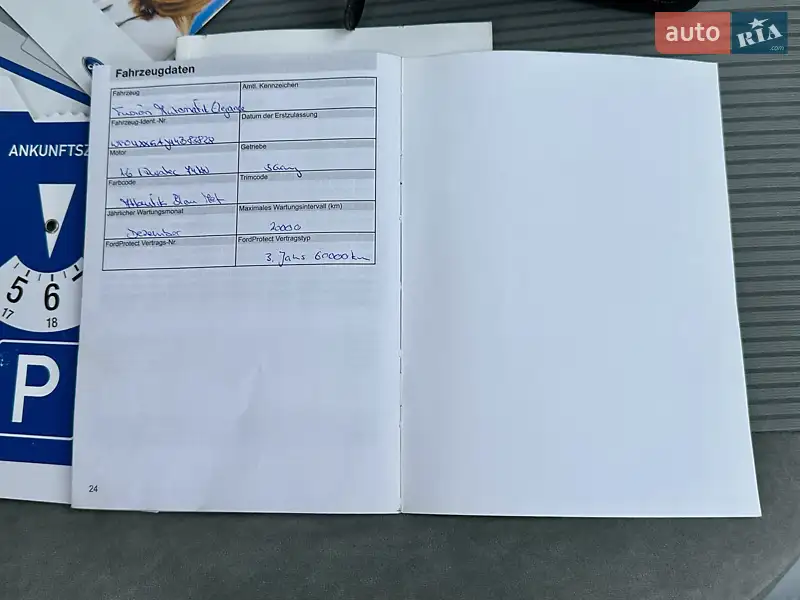 auto RIA .com
ANKUNFTSZ
5 6
17 18
P
Fahrzeugdaten
Fahrzeug
Amtl. Kennzeichen
Fusion
Fahrzeug-Ident.-Nr.
Datum der Erstzulassung
Motor
Getriebe
Farbcode
Trimcode
Jährlicher Wartungsmonat
Maximales Wartungsintervall (km)
Dezember
20000
FordProtect Vertrags-Nr.
FordProtect Vertragstyp
3. Jahr 60000 km
24